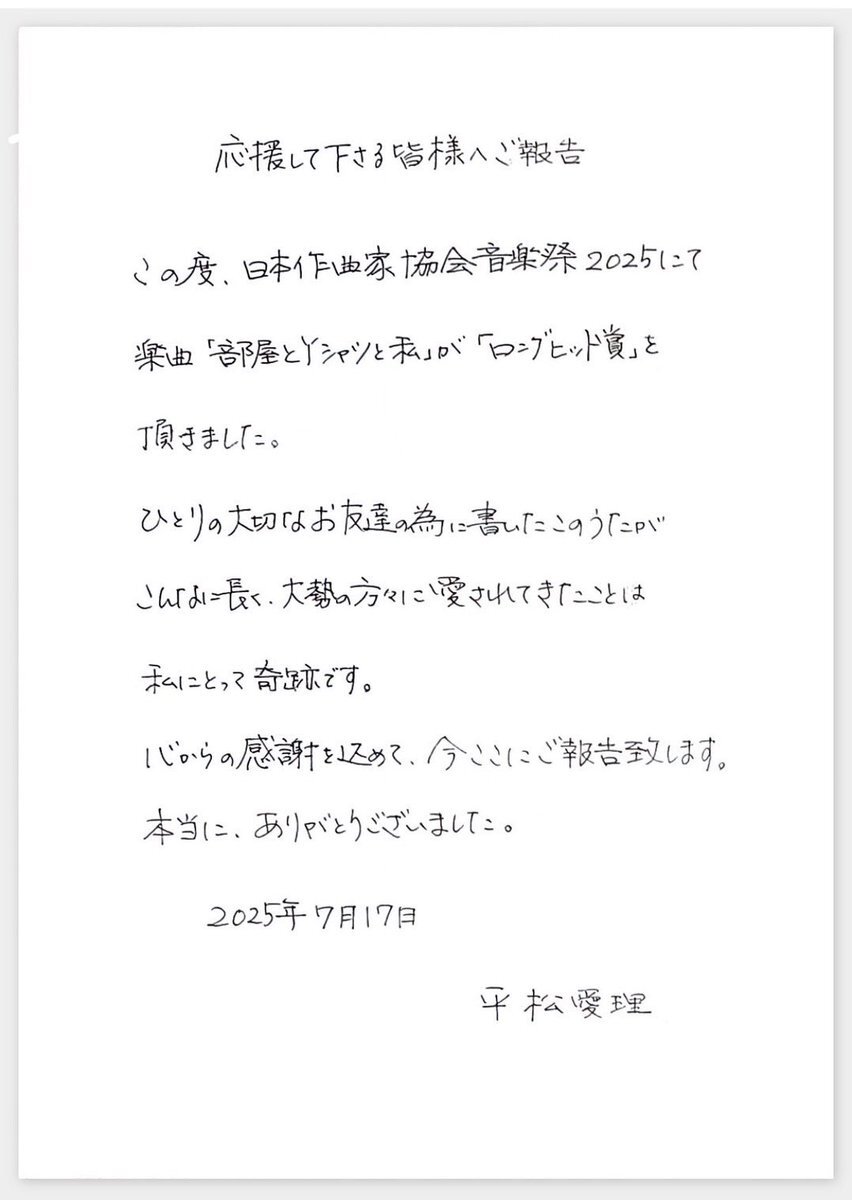 応援して下さる皆様へご報告
この度、日本作曲家協会音楽祭2025にて
楽曲「部屋とYシャツと私」が「ロングヒット賞」を
頂きました。
ひとりの大切なお友達の為に書いたこのうたが
こんなに長く、大勢の方々に愛されてきたことは
私にとって奇跡です。
心からの感謝を込めて、今ここにご報告致します。
本当に、ありがとうございました。
2025年7月17日
平松愛理